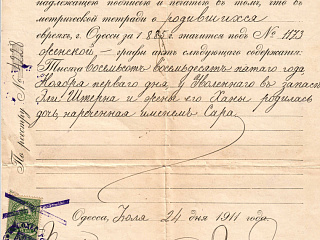 надлежащею подписью и печатью въ томъ, что въ
метрической тетради о родившихся
евреяхъ, г. Одессы за 1885 г. значится подъ № 1173
женской — графы актъ слѣдующаго содержанія:
Тысяча восемьсотъ восемьдесятъ пятаго года
Ноября перваго дня у Уволеннаго въ запасъ
Эли Штерна и жены его Ханы родилась
дочь, нареченная именемъ Сара.
Одесса, Іюля 24 дня 1911 года.
По реестру №